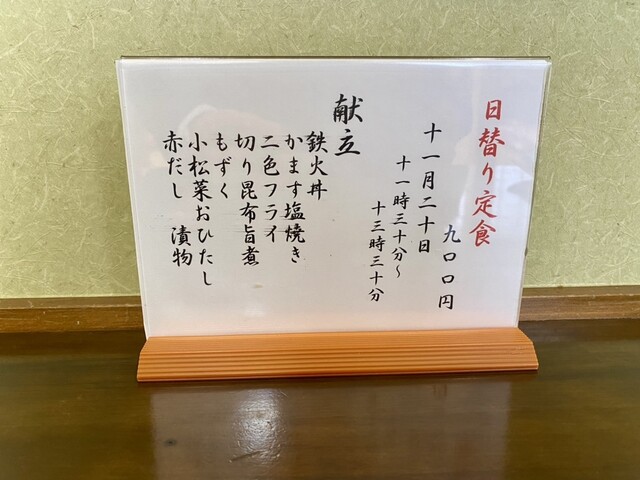 日替り定食
九〇〇円
十一月二十日
十一時三十分～
十三時三十分
献立
鉄火丼
かます塩焼き
二色フライ
切り昆布旨煮
もずく
小松菜おひたし
赤だし 漬物